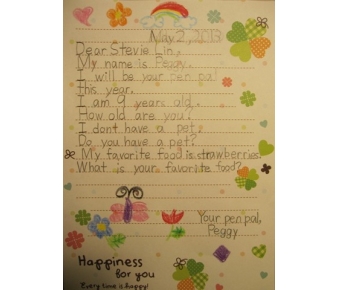 May 2, 2013
Dear Stevie Lin,
My name is Peggy.
I will be your pen pal
this year.
I am 9 years old.
How old are you?
I dont have a pet.
Do you have a pet?
My favorite food is strawberries.
What is your favorite food?
Your pen pal,
Peggy
Happiness
for you
Every time is happy!